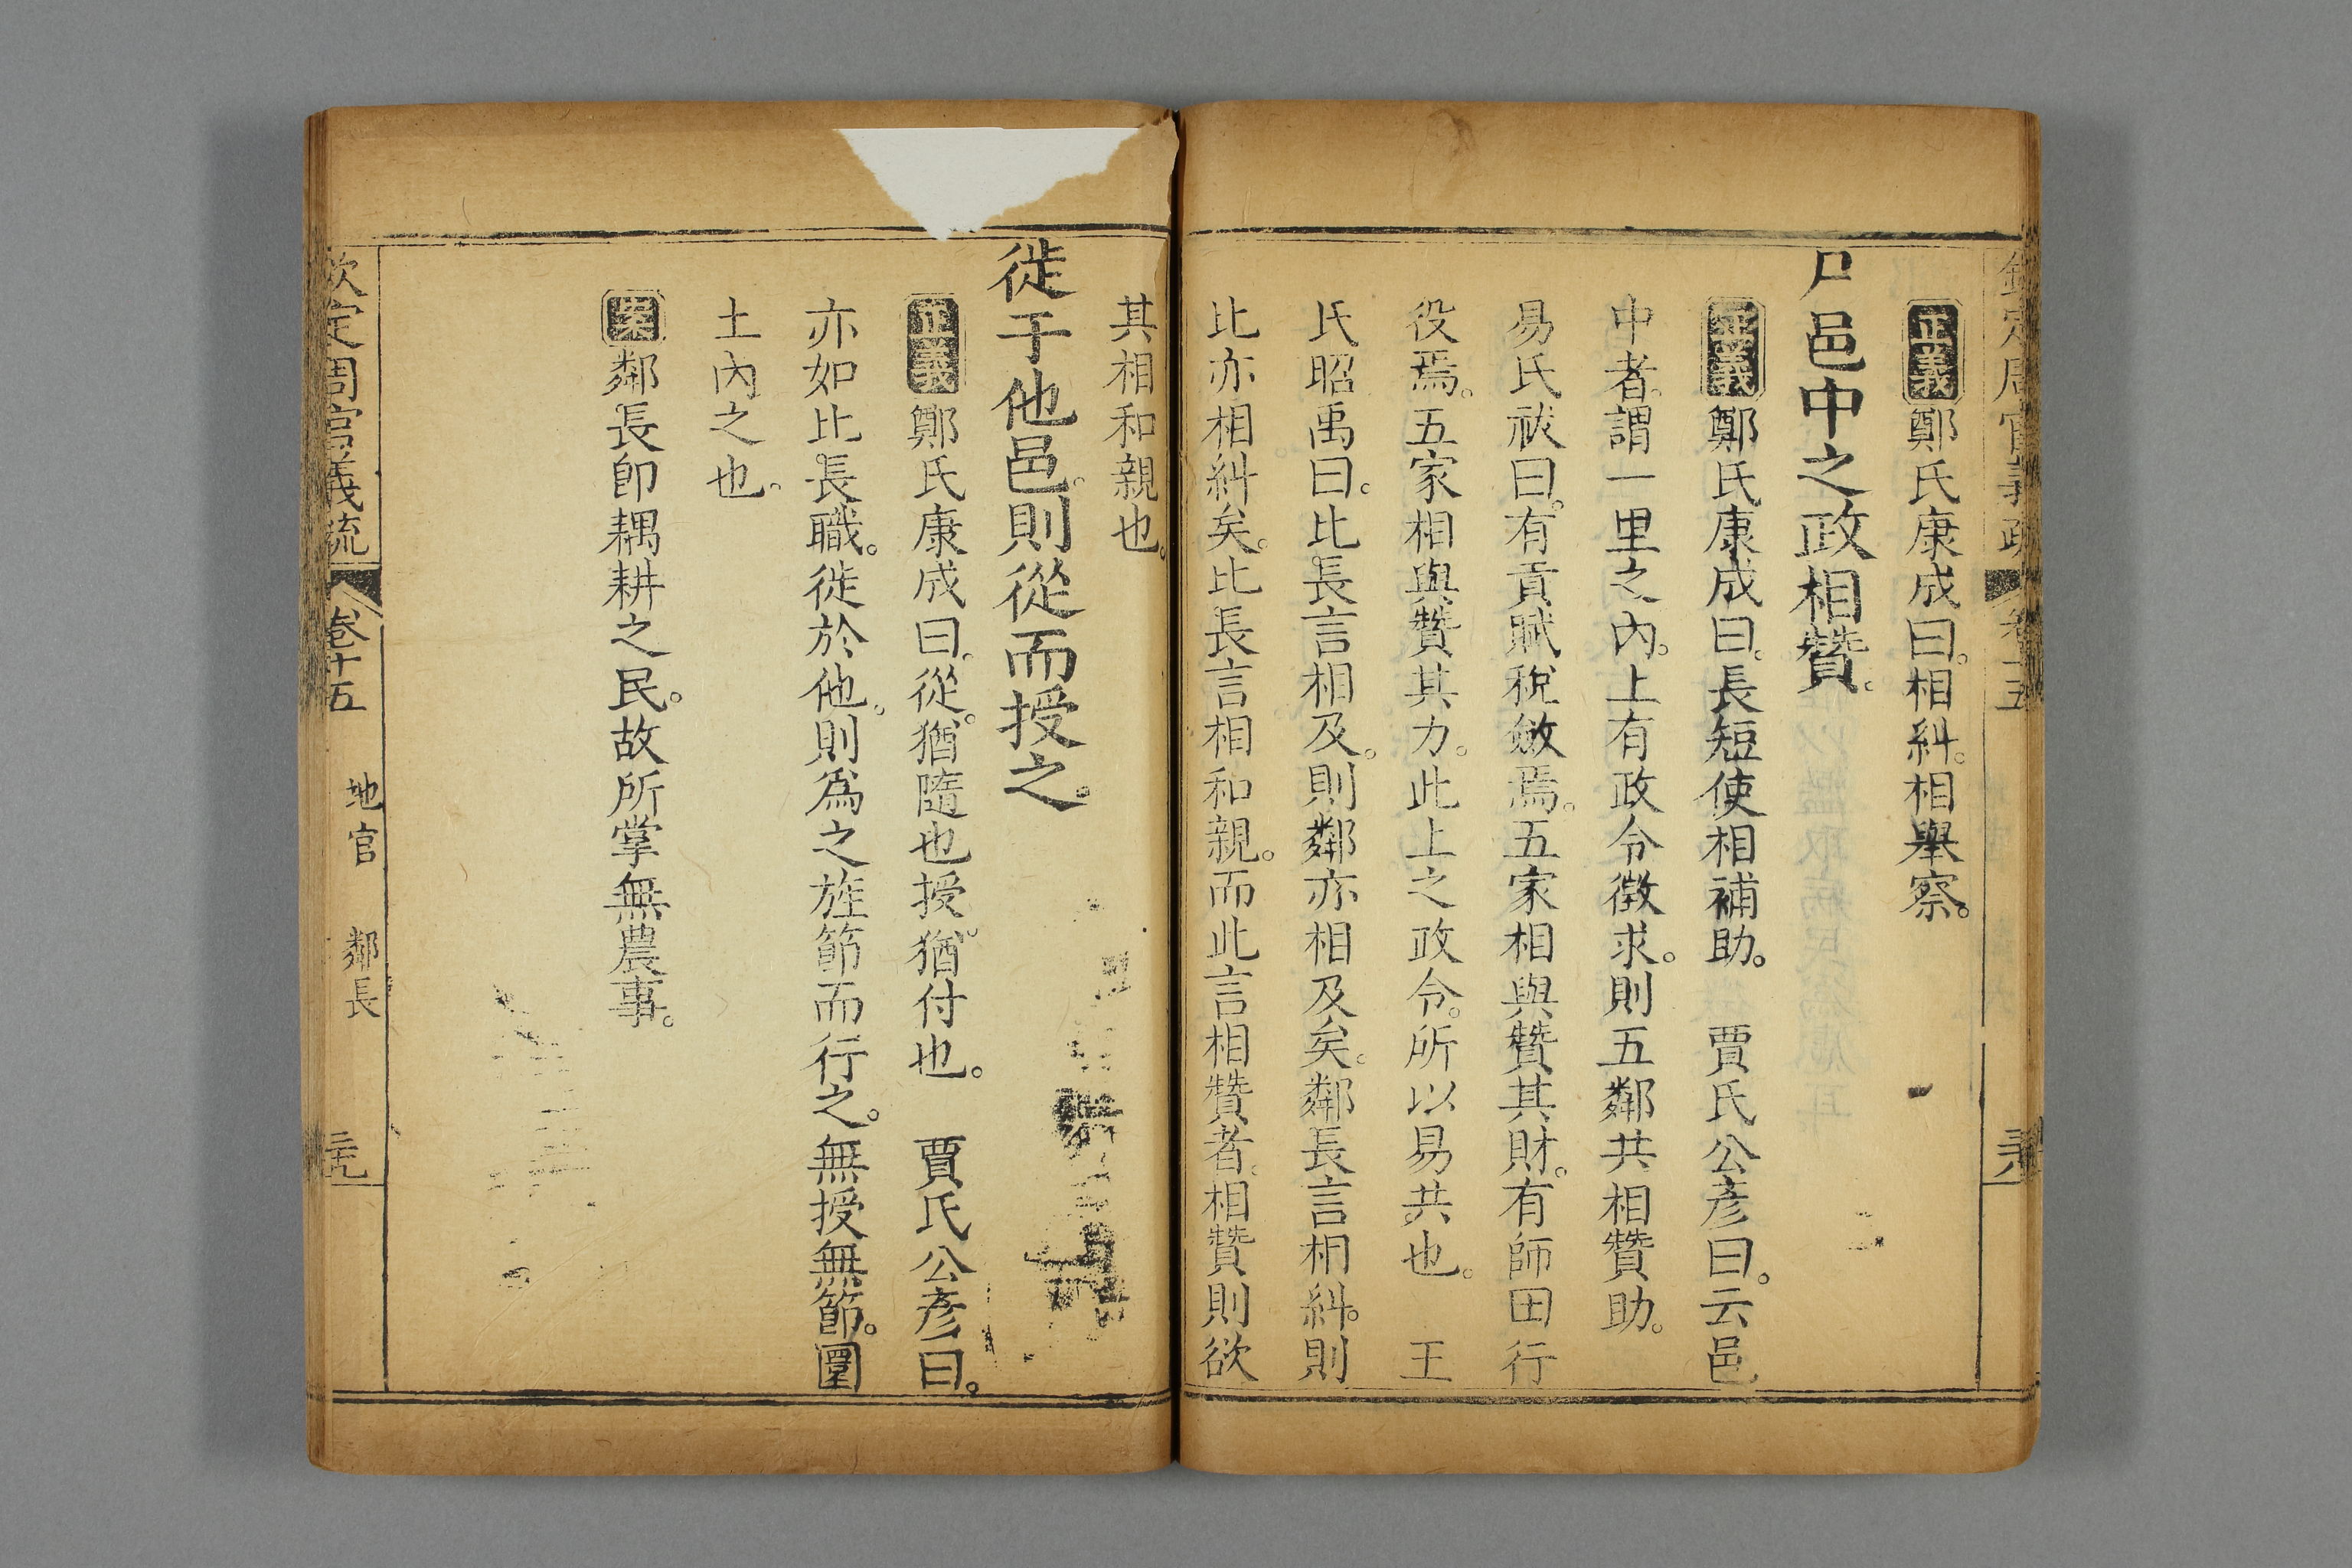 正義鄭氏康成曰。相糾。相舉察。
邑中之政相贊。
正義鄭氏康成曰。長短使相補助。　賈氏公彥曰。云邑
中者。謂一里之內。上有政令徵求。則五鄰共相贊助。
易氏祓曰。有貢賦稅斂焉。五家相與贊其財。有師田行
役焉。五家相與贊其力。此上之政令。所以易共也。　王
氏昭禹曰。比長言相及。則鄰亦相及矣。鄰長言相糾。則
比亦相糾矣。比長言相和親。而此言相贊者。相贊則欲
其相和親也。
徙于他邑。則從而授之。
正義鄭氏康成曰。從。猶隨也。授。猶付也。　賈氏公彥曰。
亦如比長職。徙於他。則爲之旌節而行之。無授無節。圜
土內之也。
案鄰長卽耦耕之民。故所掌無農事。
欽定周官義疏　卷十五　地官　鄰長